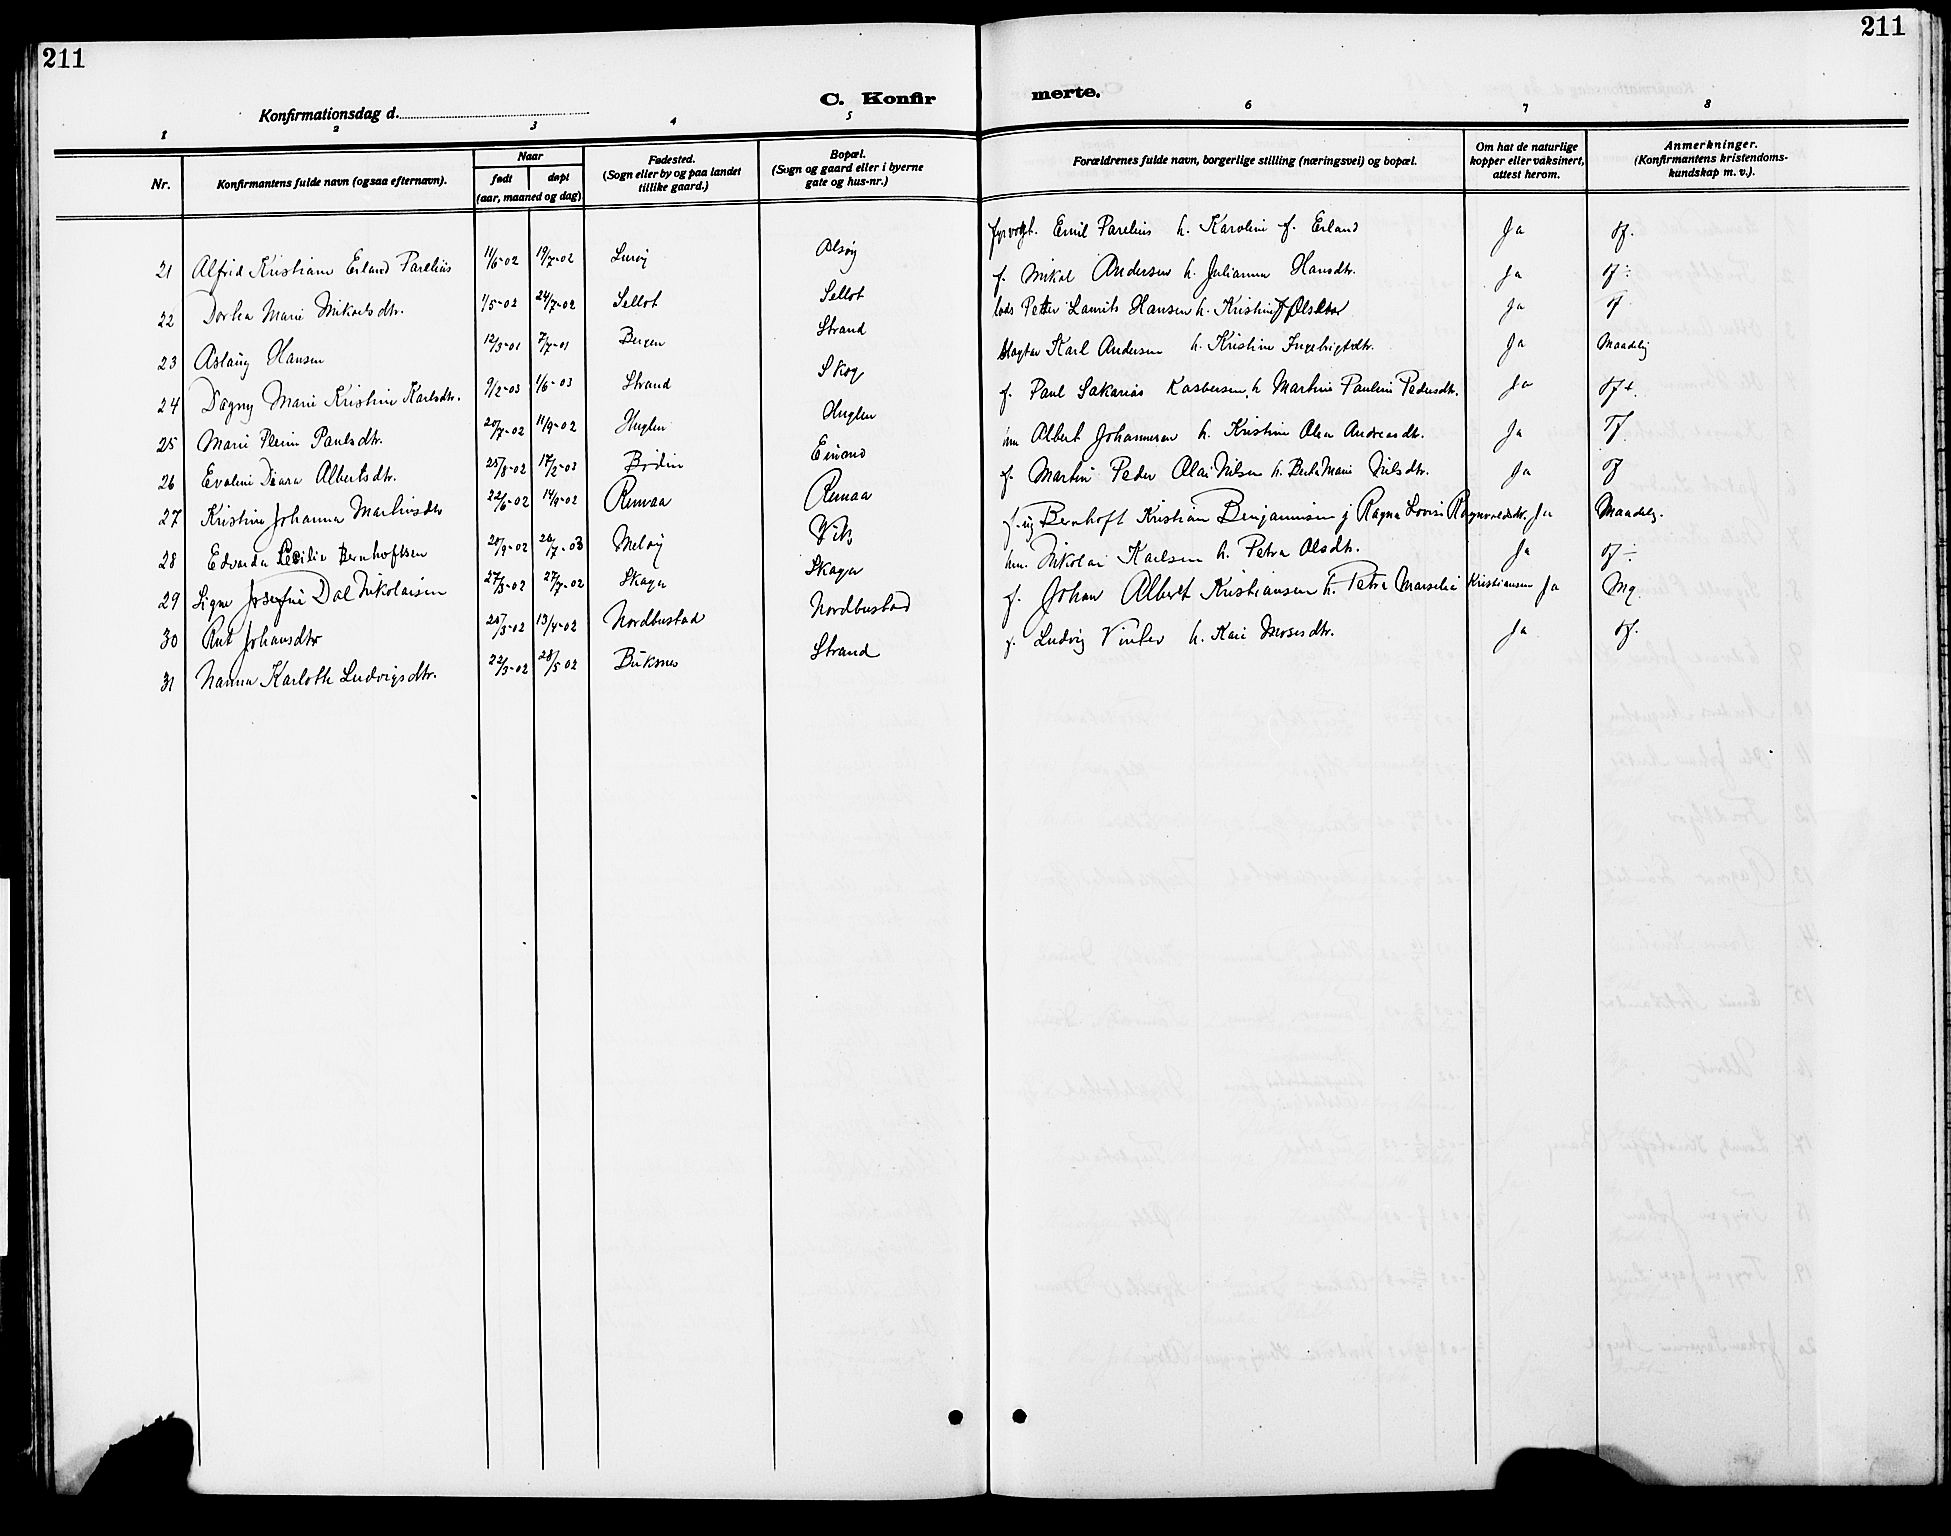 211
211
C. Konfir merte.
Konfirmationsdag d.
1 2 3 4 5 6 7 8
Nr.
Konfirmantens fulde navn (ogsaa efternavn).
Naar
født døpt
(aar, maaned og dag)
Fødested.
(Sogn eller by og paa landet
tillike gaard.)
Bopæl.
(Sogn og gaard eller i byerne
gate og hus-nr.)
Forældrenes fulde navn, borgerlige stilling (næringsvei) og bopæl.
Om hat de naturlige
kopper eller vaksinert,
attest herom.
Anmerkninger.
(Konfirmantens kristendoms-
kundskap m. v.).
21 Alfrid Kristian Erland Parelius 11/6-02 19/7-02 Lurøy Alsøy fyrvogt. Emil Parelius h. Karoline f. Erland Ja
22 Dorthea Marie Mikalsdtr. 1/5-02 24/7-02 Selbot Selbot f. Mikal Andersen h. Julianna Hansdtr. Ja
23 Aslaug Hansen 12/3-01 7/7-01 Bergen Strand lods Petter Laurits Hansen h. Kristine Ja
24 Dagny Marie Kristine Karlsdtr. 9/2-03 1/6-03 Strand Skog Slagter Karl Andersen h. Kristine Ingebrigtsdtr. Ja Maadelig
25 Marie Paulsdtr. 20/7-02 11/9-02 Huglen Huglen f. Paul Sakarias Kasbersen h. Martine Pauline Pedersdtr. Ja
26 Evaline Albertsdtr. 25/8-02 17/2-03 Bodin hm Albert Johannesen h. Kristine Olea Andreasdtr. Ja
27 Kristine Johanna Martinsdtr 22/6-02 14/9-02 Remaa Remaa f. Martin Peder Olai Nilsen h. Marie Nilsdtr. Ja
28 Edvarda Cecilie Bernhoftsen 20/9-02 20/7-03 Meløy Vik f. ug Bernhoft Kristian Benjaminsen j Ragna Lovise Ragnvaldsdtr. Ja Maadelig.
29 Signe Josefine Dal Nikolaisen 27/3-02 27/7-02 Skaga Skaga hm. Nikolai Karlsen h. Petra Olsdtr. Ja
30 Rut Johansdtr 25/3-02 13/4-02 Nordbustad Nordbustad f. Johan Albert Kristiansen h. Petra Marselie Kristiansen Ja Mg.
31 Nanna Karloth Ludvigsdtr. 22/3-02 28/5 02 Buksnes Strand f. Ludvig Vinter h. Kari Mosesdtr. Ja